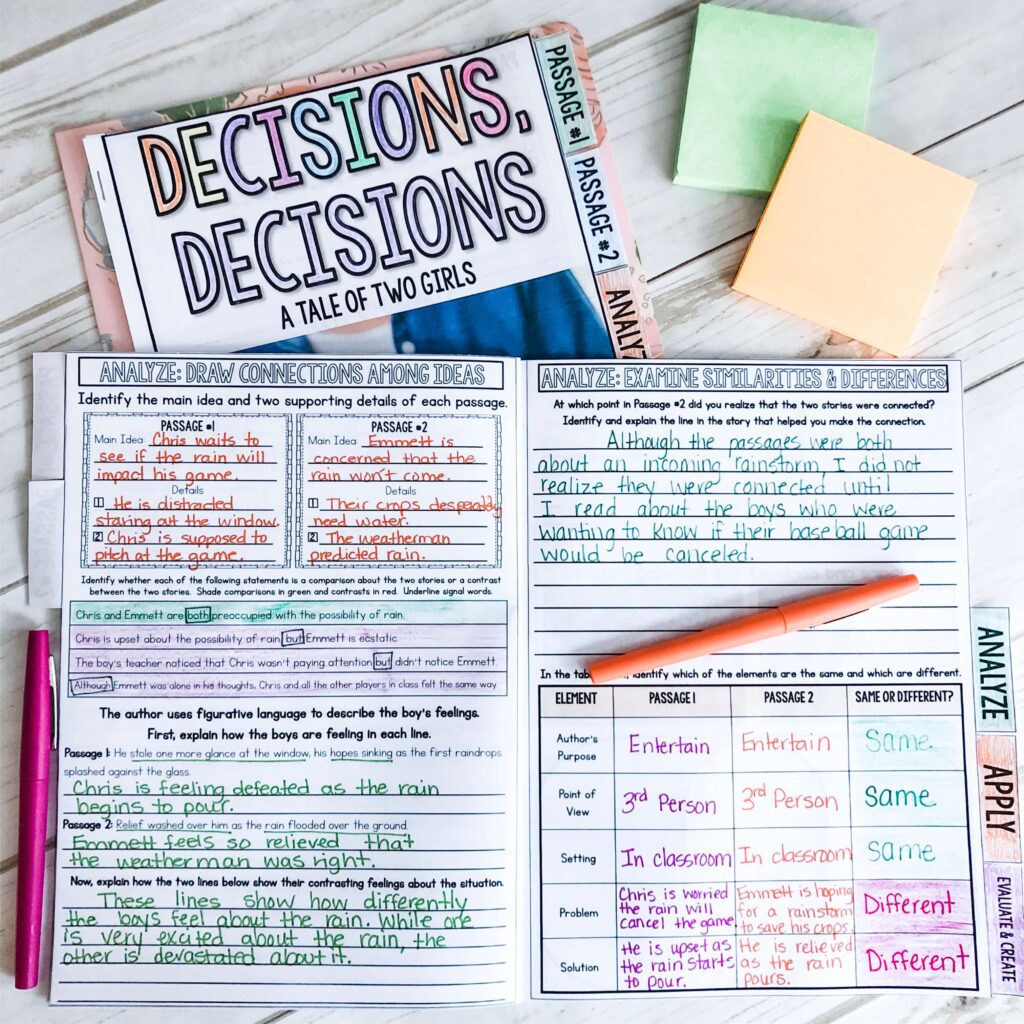 DECISIONS,
DECISIONS
A TALE OF TWO GIRLS
PASSAGE #1
PASSAGE #2
ANALY
ANALYZE: DRAW CONNECTIONS AMONG IDEAS
Identify the main idea and two supporting details of each passage.
PASSAGE #1
Main Idea: Chris waits to
see if the rain will
impact his game.
Details
1 He is distracted
staring out the window.
2 Chris is supposed to
pitch at the game.
PASSAGE #2
Main Idea: Emmett is
concerned that the
rain won't come.
Details
1 Their crops desperatly
need water.
2 The weatherman
predicted rain.
Identify whether each of the following statements is a comparison about the two stories or a contrast
between the two stories. Shade comparisons in green and contrasts in red. Underline signal words.
Chris and Emmett are both preoccupied with the possibility of rain.
Chris is upset about the possibility of rain but Emmett is ecstatic.
The boy's teacher noticed that Chris wasn't paying attention but didn't notice Emmett.
Although Emmett was alone in his thoughts, Chris and all the other players in class felt the same way
The author uses figurative language to describe the boy's feelings.
First, explain how the boys are feeling in each line.
Passage 1: He stole one more glance at the window, his hopes sinking as the first raindrops
splashed against the glass.
Chris is feeling defeated as the rain
begins to pour.
Passage 2: Relief washed over him as the rain flooded over the ground.
Emmett feels so relieved that
the weatherman was right.
Now, explain how the two lines below show their contrasting feelings about the situation.
These lines show how differently
the boys feel about the rain. While one
is very excited about the rain, the
other is devastated about it.
ANALYZE: EXAMINE SIMILARITIES & DIFFERENCES
At which point in Passage #2 did you realize that the two stories were connected?
Identify and explain the line in the story that helped you make the connection.
Although the passages were both
about an incoming rainstorm, I did not
realize they were connected until
I read about the boys who were
wanting to know if their baseball game
would be canceled.
In the tab identify which of the elements are the same and which are different.
ELEMENT PASSAGE 1 PASSAGE 2 SAME OR DIFFERENT?
Author's Purpose Entertain Entertain Same
Point of View 3rd Person 3rd Person Same
Setting In classroom In classroom Same
Problem Chris is worried the rain will cancel the game. Emmett is hoping for a rainstorm to save his crops. Different
Solution He is upset as the rain starts to pour. He is relieved as the rain pours. Different
ANALYZE
APPLY
EVALUATE & CREATE